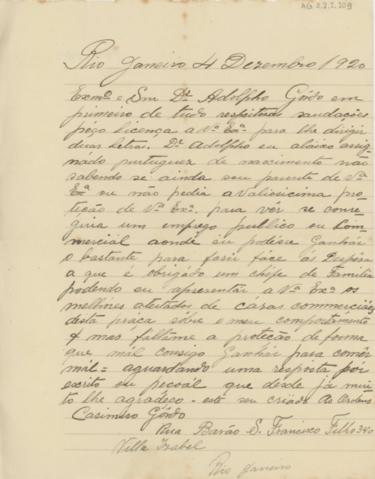 AG 2.2.2.209
Rio Janeiro 4 Dezembro 1920
Exmº e Snr Dr. Adolpho Gôrdo em
primeiro de tudo respeitosas saudações
peço licença a Vª Exª para lhe dirigir
duas letras. Dr. Adolpho eu abaixo assig
nádo portuguez de nascimento não
sabendo se ainda sou parente de Vª
Exª eu não pedia a valiosicima pro
teção de Vª Exª. para vêr se conse
guia um emprego publico ou Com
mercial aonde eu podese Ganhár
o bastante para fazer face ás Despeza
a que é obrigado um chefe de Familia
podendo eu apresentar a Vª Exª os
melhores atestados de cázas commerciáes
desta práca sôbre o meu comportamento
mas faltáme a proteção de fórma
que mál consigo Ganhár para comêr
mál = aguardando uma resposta pôr
escrito ou pecoál que desde já mui
to lhe agradeço - este seu criádo ás Ordens
Casimiro Gôrdo
Rua Barão S. Francisco Filho 340
Villa Izabel
Rio Janeiro